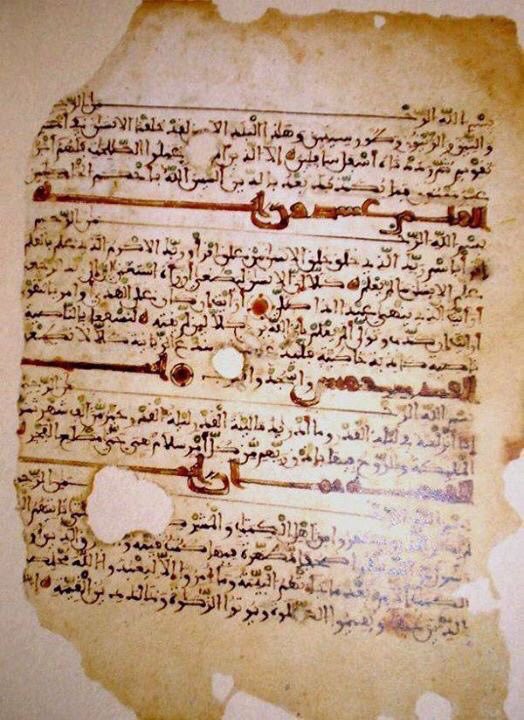 بسم الله الرحمن الرحيم
والتين والزيتون وطور سينين وهذا البلد الامين لقد خلقنا الانسن في احسن
تقويم ثم رددنه اسفل سافلين الا الذين ام عملوا الصلحت فلهم اجر
غير ممنون فما يكذبك بعد بالدين اليس الله باحكم الحكمين
عشرون
بسم الله الرحمن الرحيم
اقرا باسم ربك الذي خلق خلق الانسن من علق اقرا وربك الاكرم الذي علم بالقلم
علم الانسن ما لم يعلم كلا ان الانسن ليطغى ان رءاه استغنى ان الى ربك الرجعى
ارايت الذي ينهى عبدا اذا صلى ارايت ان كان على الهدى او امر بالتقوى
ارايت ان كذب وتولى الم يعلم بان الله يرى كلا لين لم ينته لنسفعا بالناصية
ناصية كاذبة خاطية فليدع سندع الزبانية كلا لا تطعه
واسجد واقترب
بسم الله الرحمن الرحيم
انا انزلنه في ليلة القدر وما ادريك ما ليلة القدر ليلة القدر خير من الف شهر تنزل
المليكة والروح فيها باذن ربهم من كل امر سلام هي حتى مطلع الفجر
بسم الرحيم
كفروا من اهل الكتب والمشركين حتى تاتيهم
صحفا مطهرة فيها كتب قيمة وما
الكتب الا من بعد ما جاءتهم البينة وما امروا الا ليعبدوا الله مخلصين
الدين ويقيموا الصلوة ويوتوا الزكوة وذلك دين القيمة